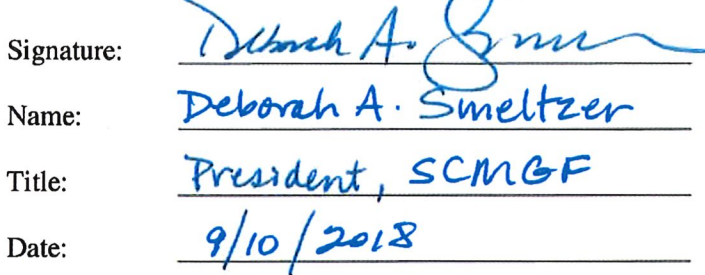 Signature: Deborah A. Smeltzer
Name: Deborah A. Smeltzer
Title: President, SCMGF
Date: 9/10/2018